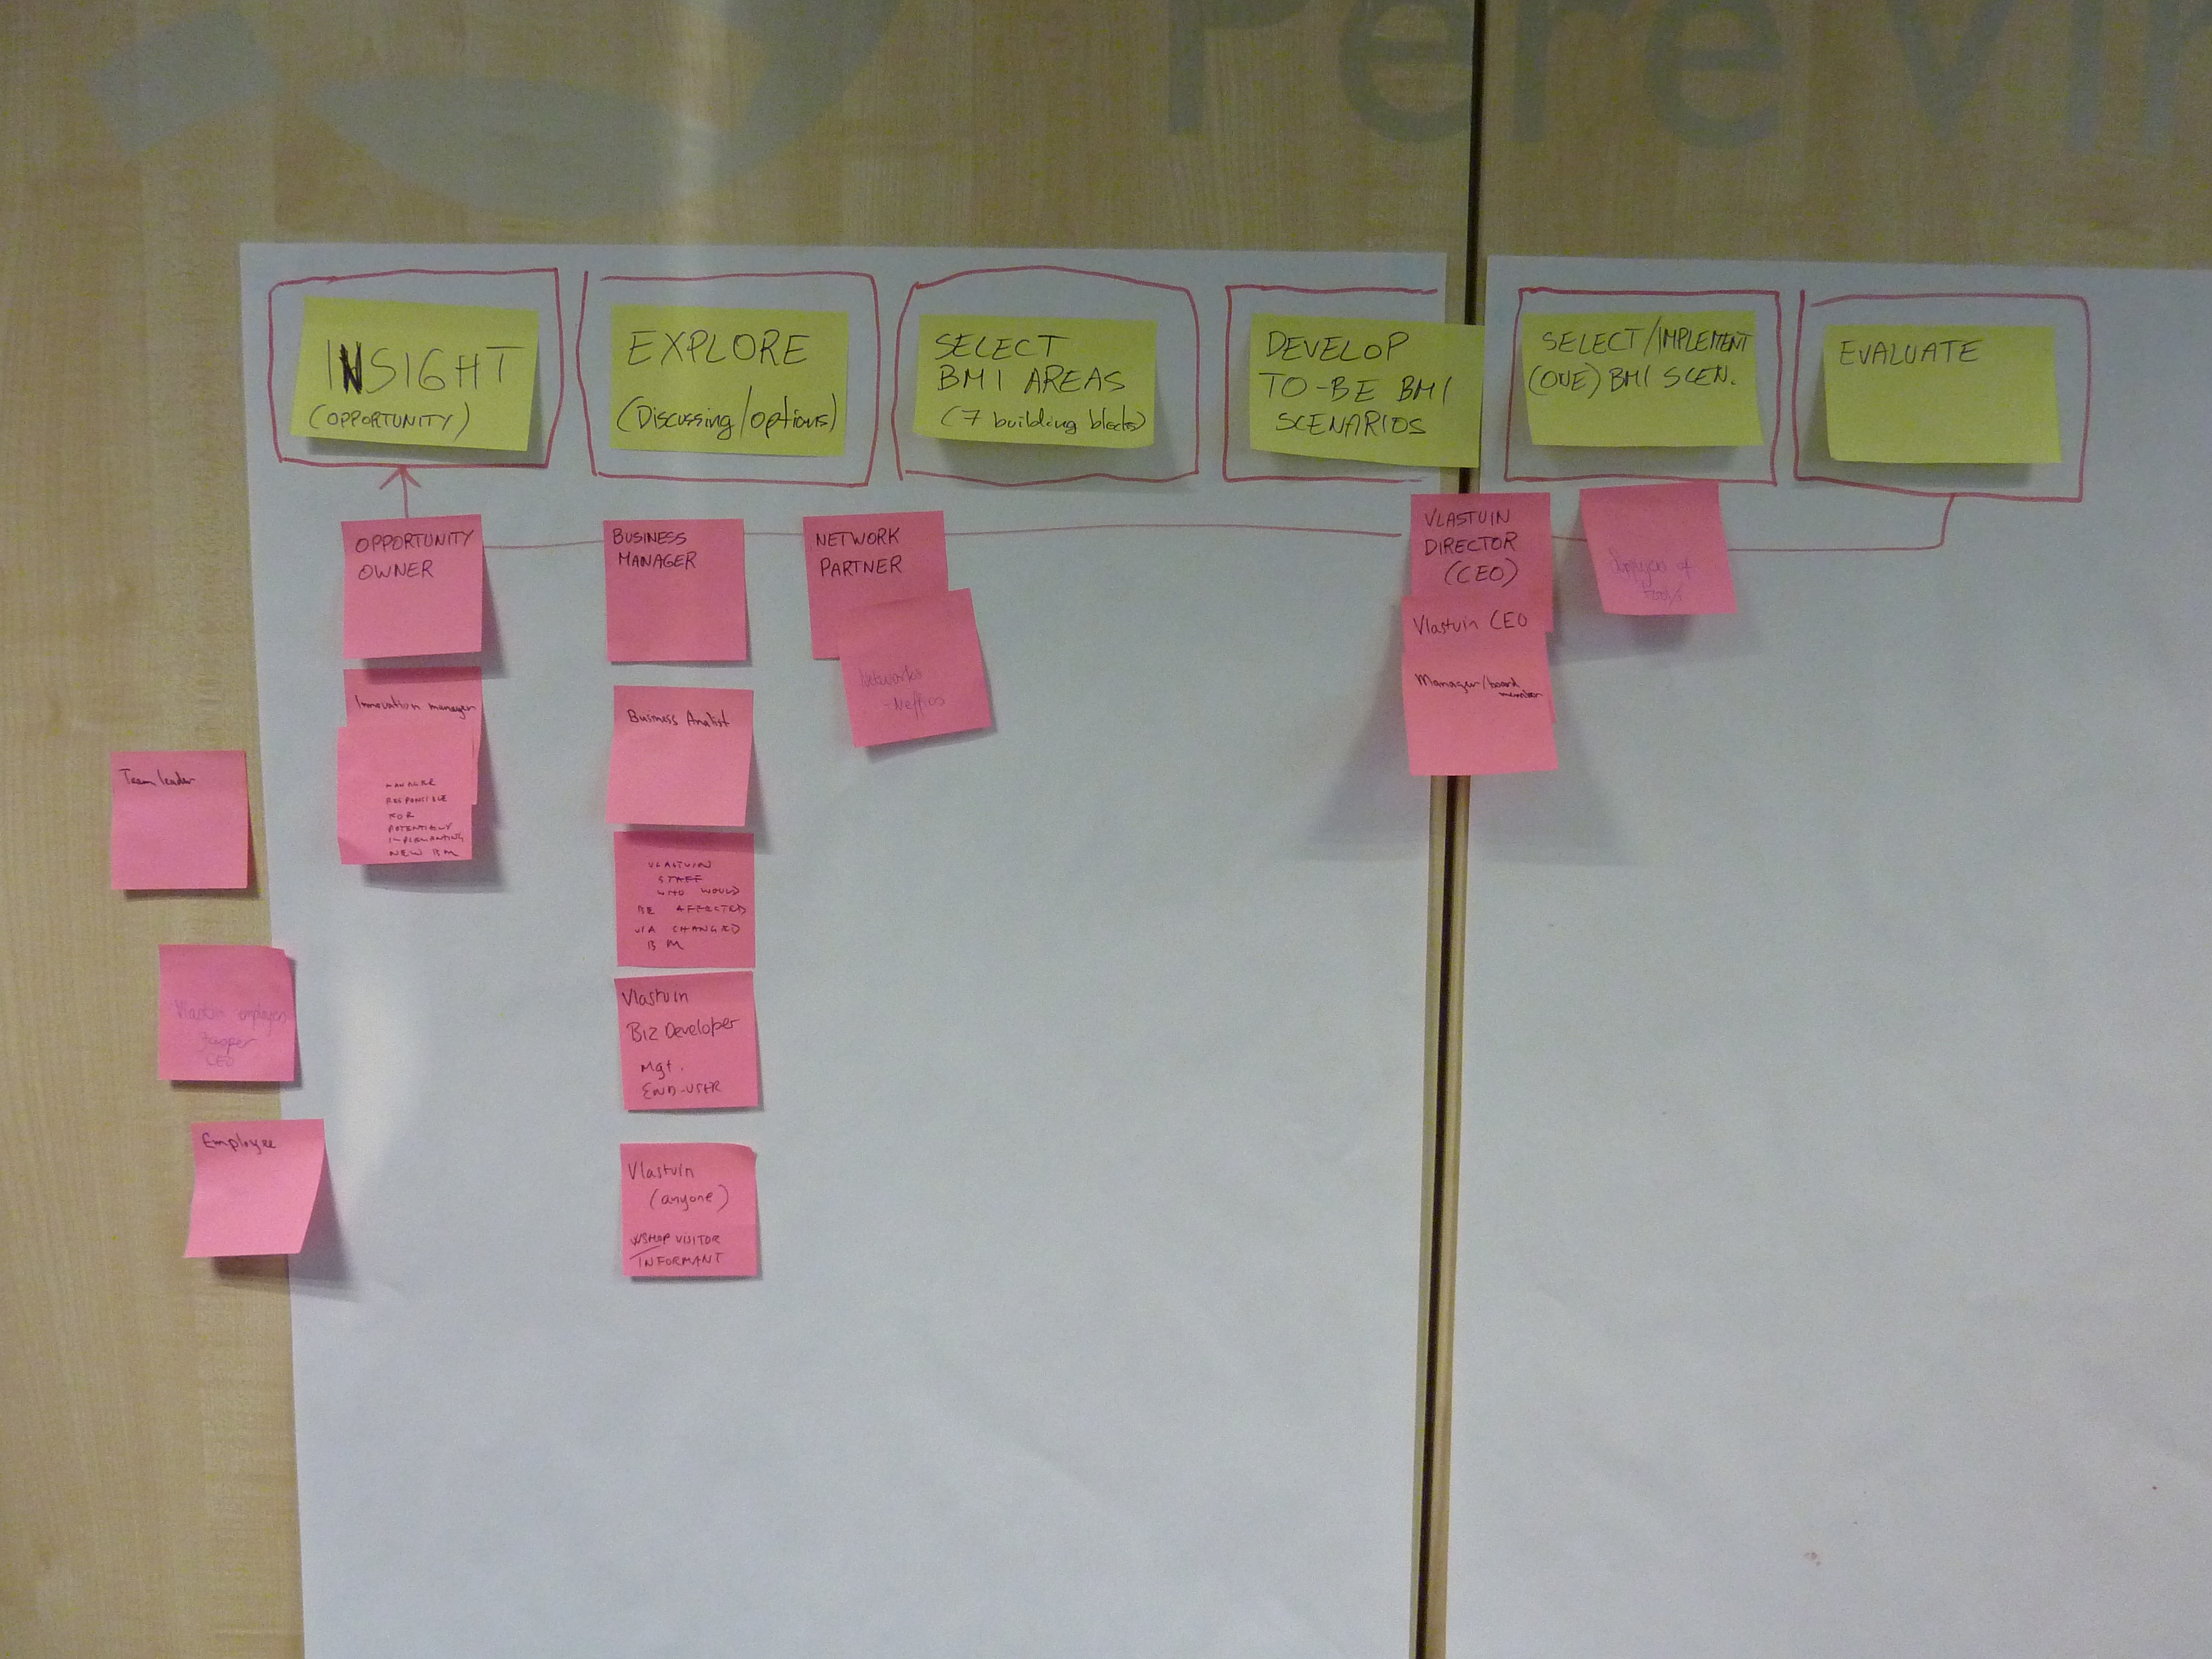 Pere Vir
INSIGHT
(OPPORTUNITY)
EXPLORE
(Discussing/options)
SELECT
BMI AREAS
(7 building blocks)
DEVELOP
TO-BE BMI
SCENARIOS
SELECT/IMPLEMENT
(ONE) BMI SCEN.
EVALUATE
OPPORTUNITY
OWNER
Innovation manager
MANAGER
RESPONSIBLE
FOR
POTENTIALLY
IMPLEMENTING
NEW BM
Team leader
Vlastuin employees
Jasper
CEO
Employee
BUSINESS
MANAGER
Business Analist
VLASTUIN
STAFF
WHO WOULD
BE AFFECTED
VIA CHANGED
BM
Vlastuin
Biz Developer
Mgt.
END-USER
Vlastuin
(anyone)
WSHOP VISITOR
INFORMANT
NETWORK
PARTNER
Networks
VLASTUIN
DIRECTOR
(CEO)
Vlastuin CEO
Manager/board
member
of